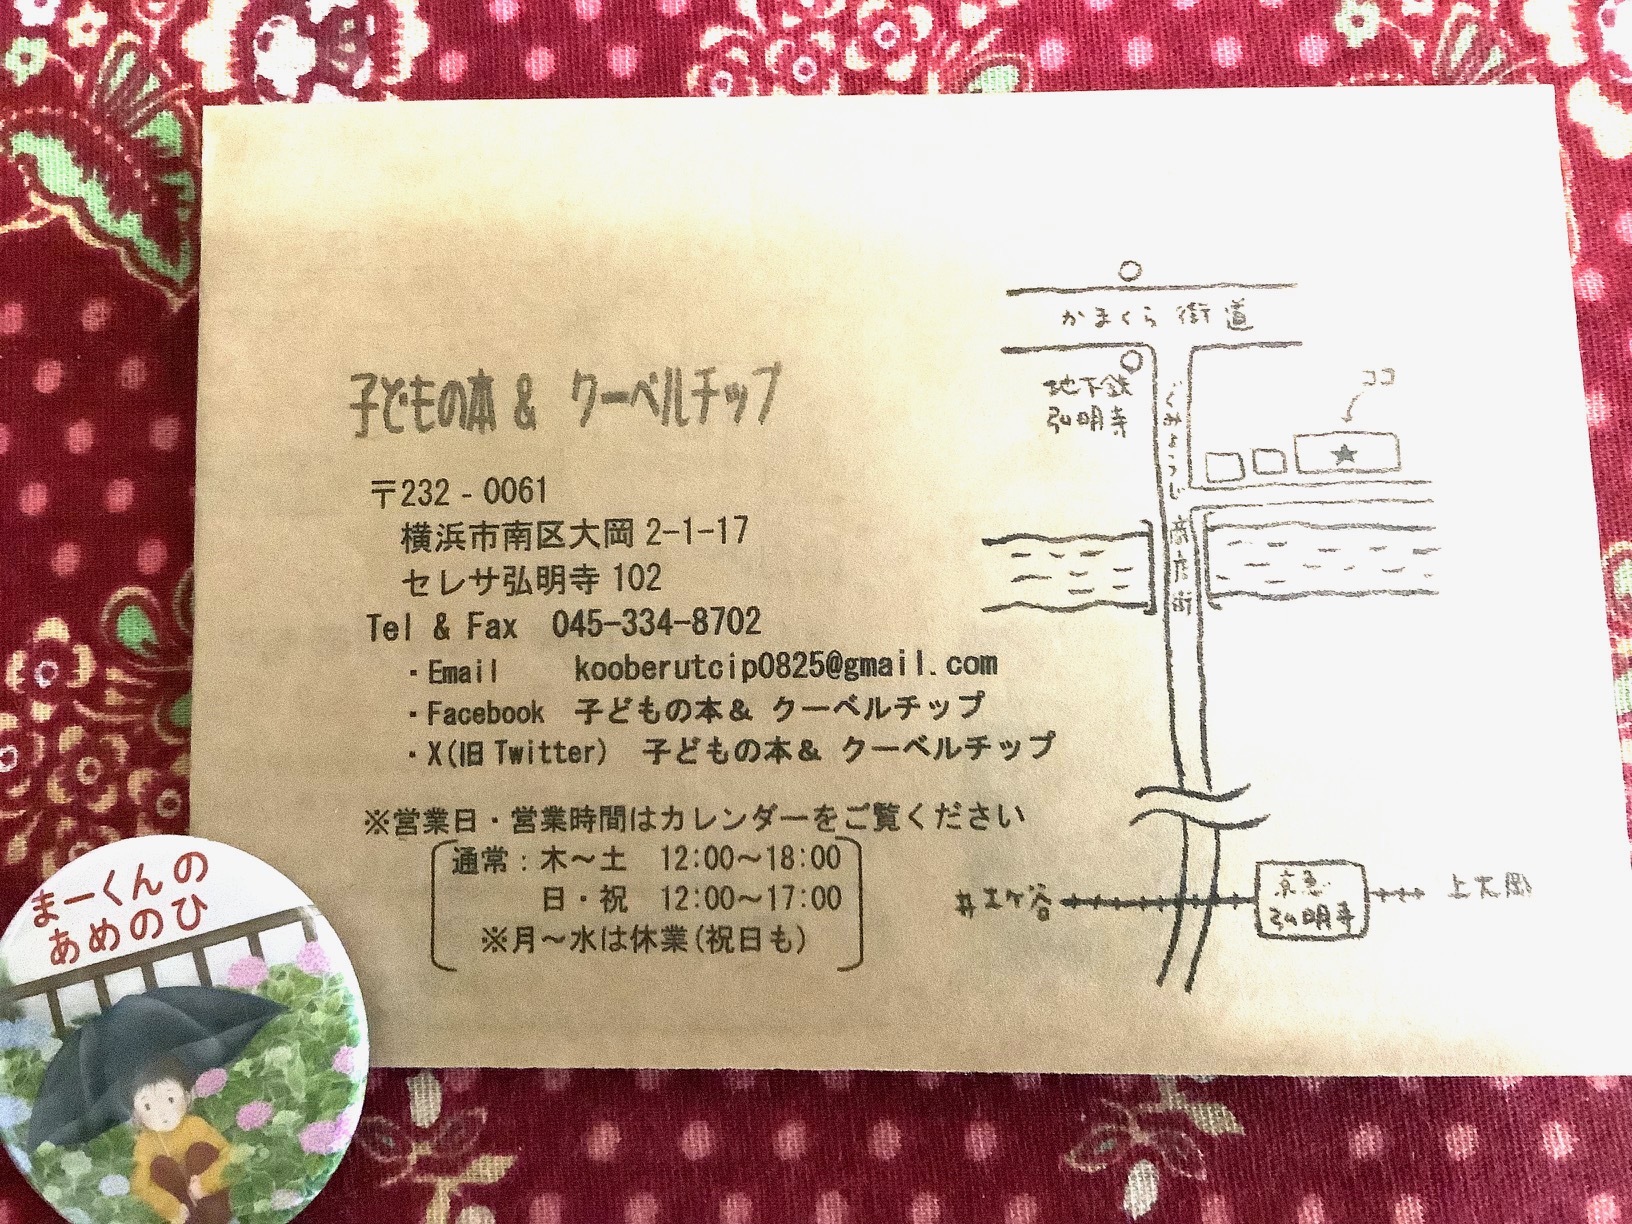 子どもの本 & クーベルチップ
〒232 - 0061
横浜市南区大岡 2-1-17
セレサ弘明寺 102
Tel & Fax 045-334-8702
・Email kooberutcip0825@gmail.com
・Facebook 子どもの本& クーベルチップ
・X(旧 Twitter) 子どもの本& クーベルチップ
※営業日・営業時間はカレンダーをご覧ください
通常：木～土 12:00～18:00
日・祝 12:00～17:00
※月～水は休業(祝日も)
かまくら 街道
地下鉄
弘明寺
ココ
ぐみょうじ
商店街
井土ヶ谷
京急
弘明寺
上大岡
まーくんの
あめのひ